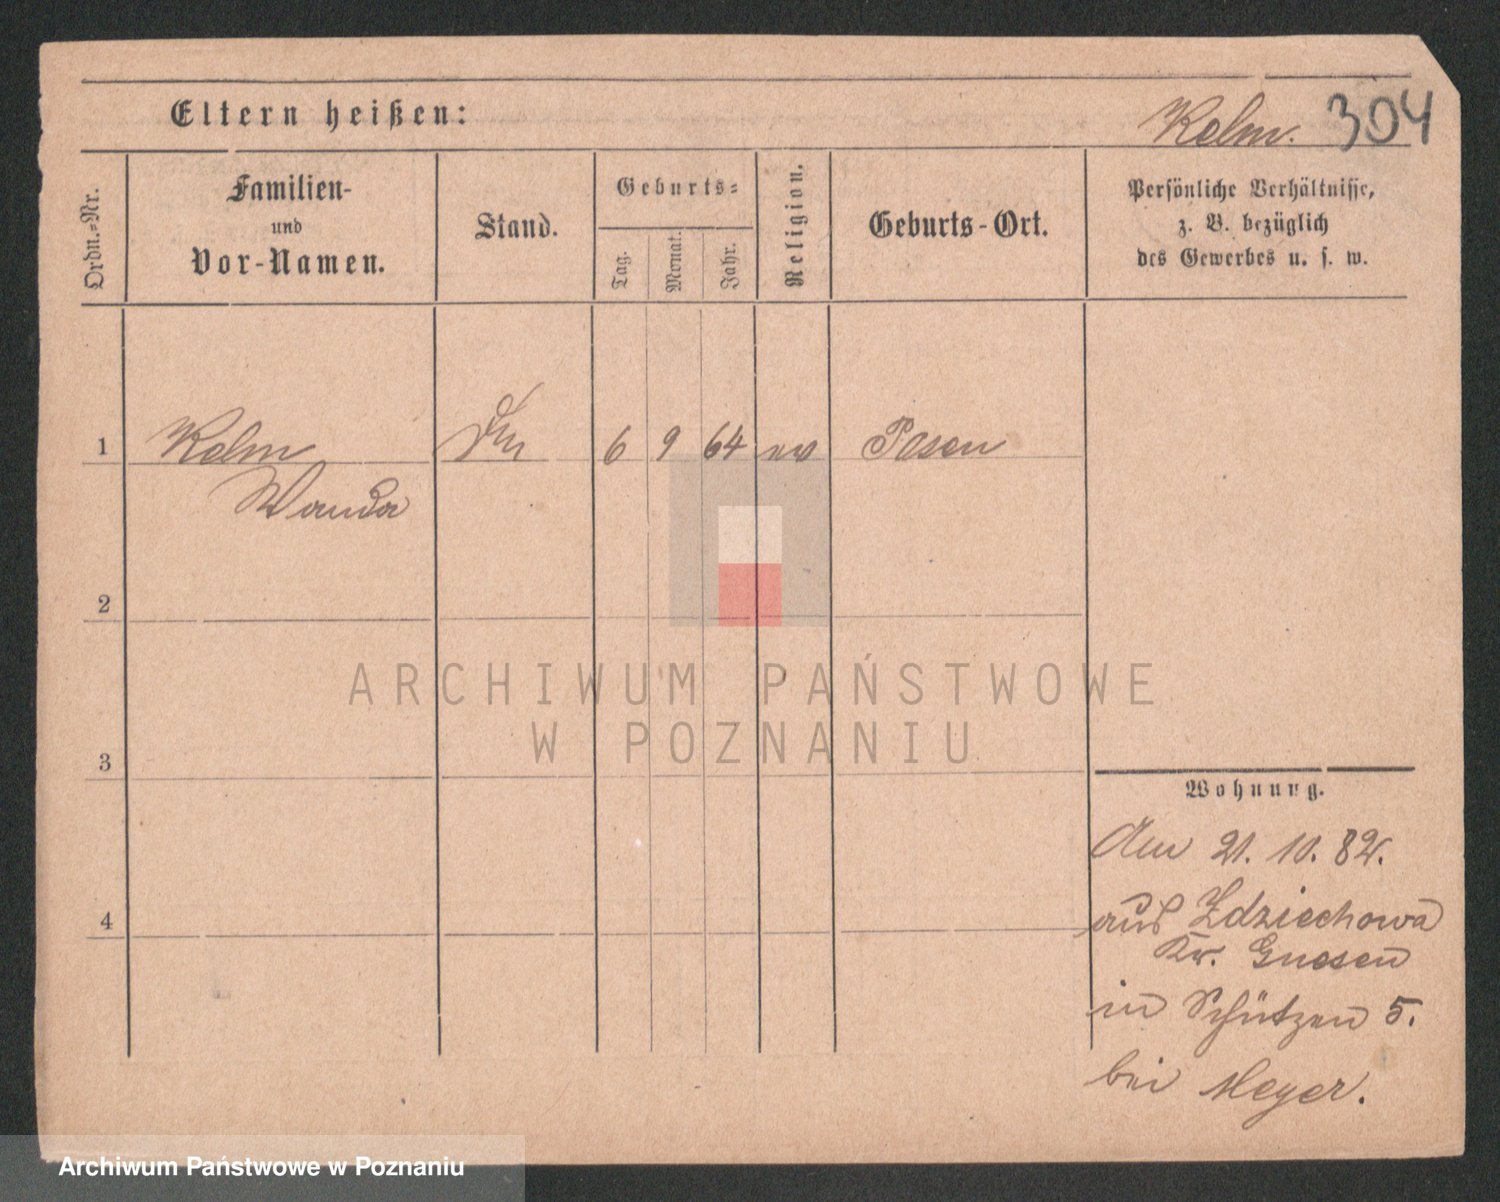 Eltern heißen:
Kelm. 304
Ordn.=Nr.
Familien-
und
Vor-Namen.
Stand.
Geburts=
Tag.
Monat.
Jahr.
Religion.
Geburts-Ort.
Persönliche Verhältnisse,
z. B. bezüglich
des Gewerbes u. s. w.
1 Kelm 6 9 64 ev Posen
Wanda
2
3
4
Wohnung.
Am 21. 10. 82.
aus Zdziechowa
Kr. Gnesen
in Schützen 5.
bei Meyer.
ARCHIWUM PAŃSTWOWE
W POZNANIU
Archiwum Państwowe w Poznaniu